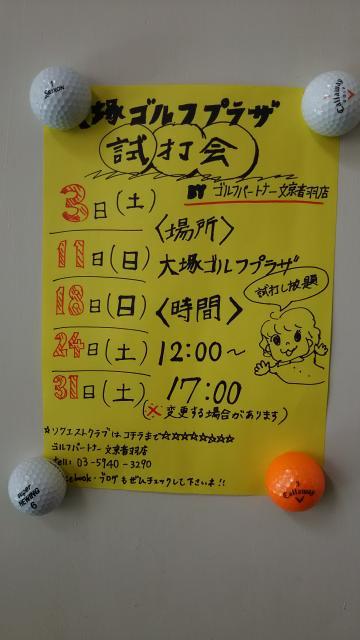 大塚ゴルフプラザ
試打会
BY ゴルフパートナー文京音羽店
3日(土)
11日(日)
18日(日)
24日(土)
31日(土)
〈場所〉
大塚ゴルフプラザ
〈時間〉
12:00〜
17:00
(※変更する場合があります)
試打し放題
☆リクエストクラブはコチラまで☆☆☆☆☆☆☆☆
ゴルフパートナー 文京音羽店
tell: 03-5940-3290
facebook・ブログもぜひチェックして下さいネ!!
SRIXON
Callaway
super NEWING
6
3
Callaway